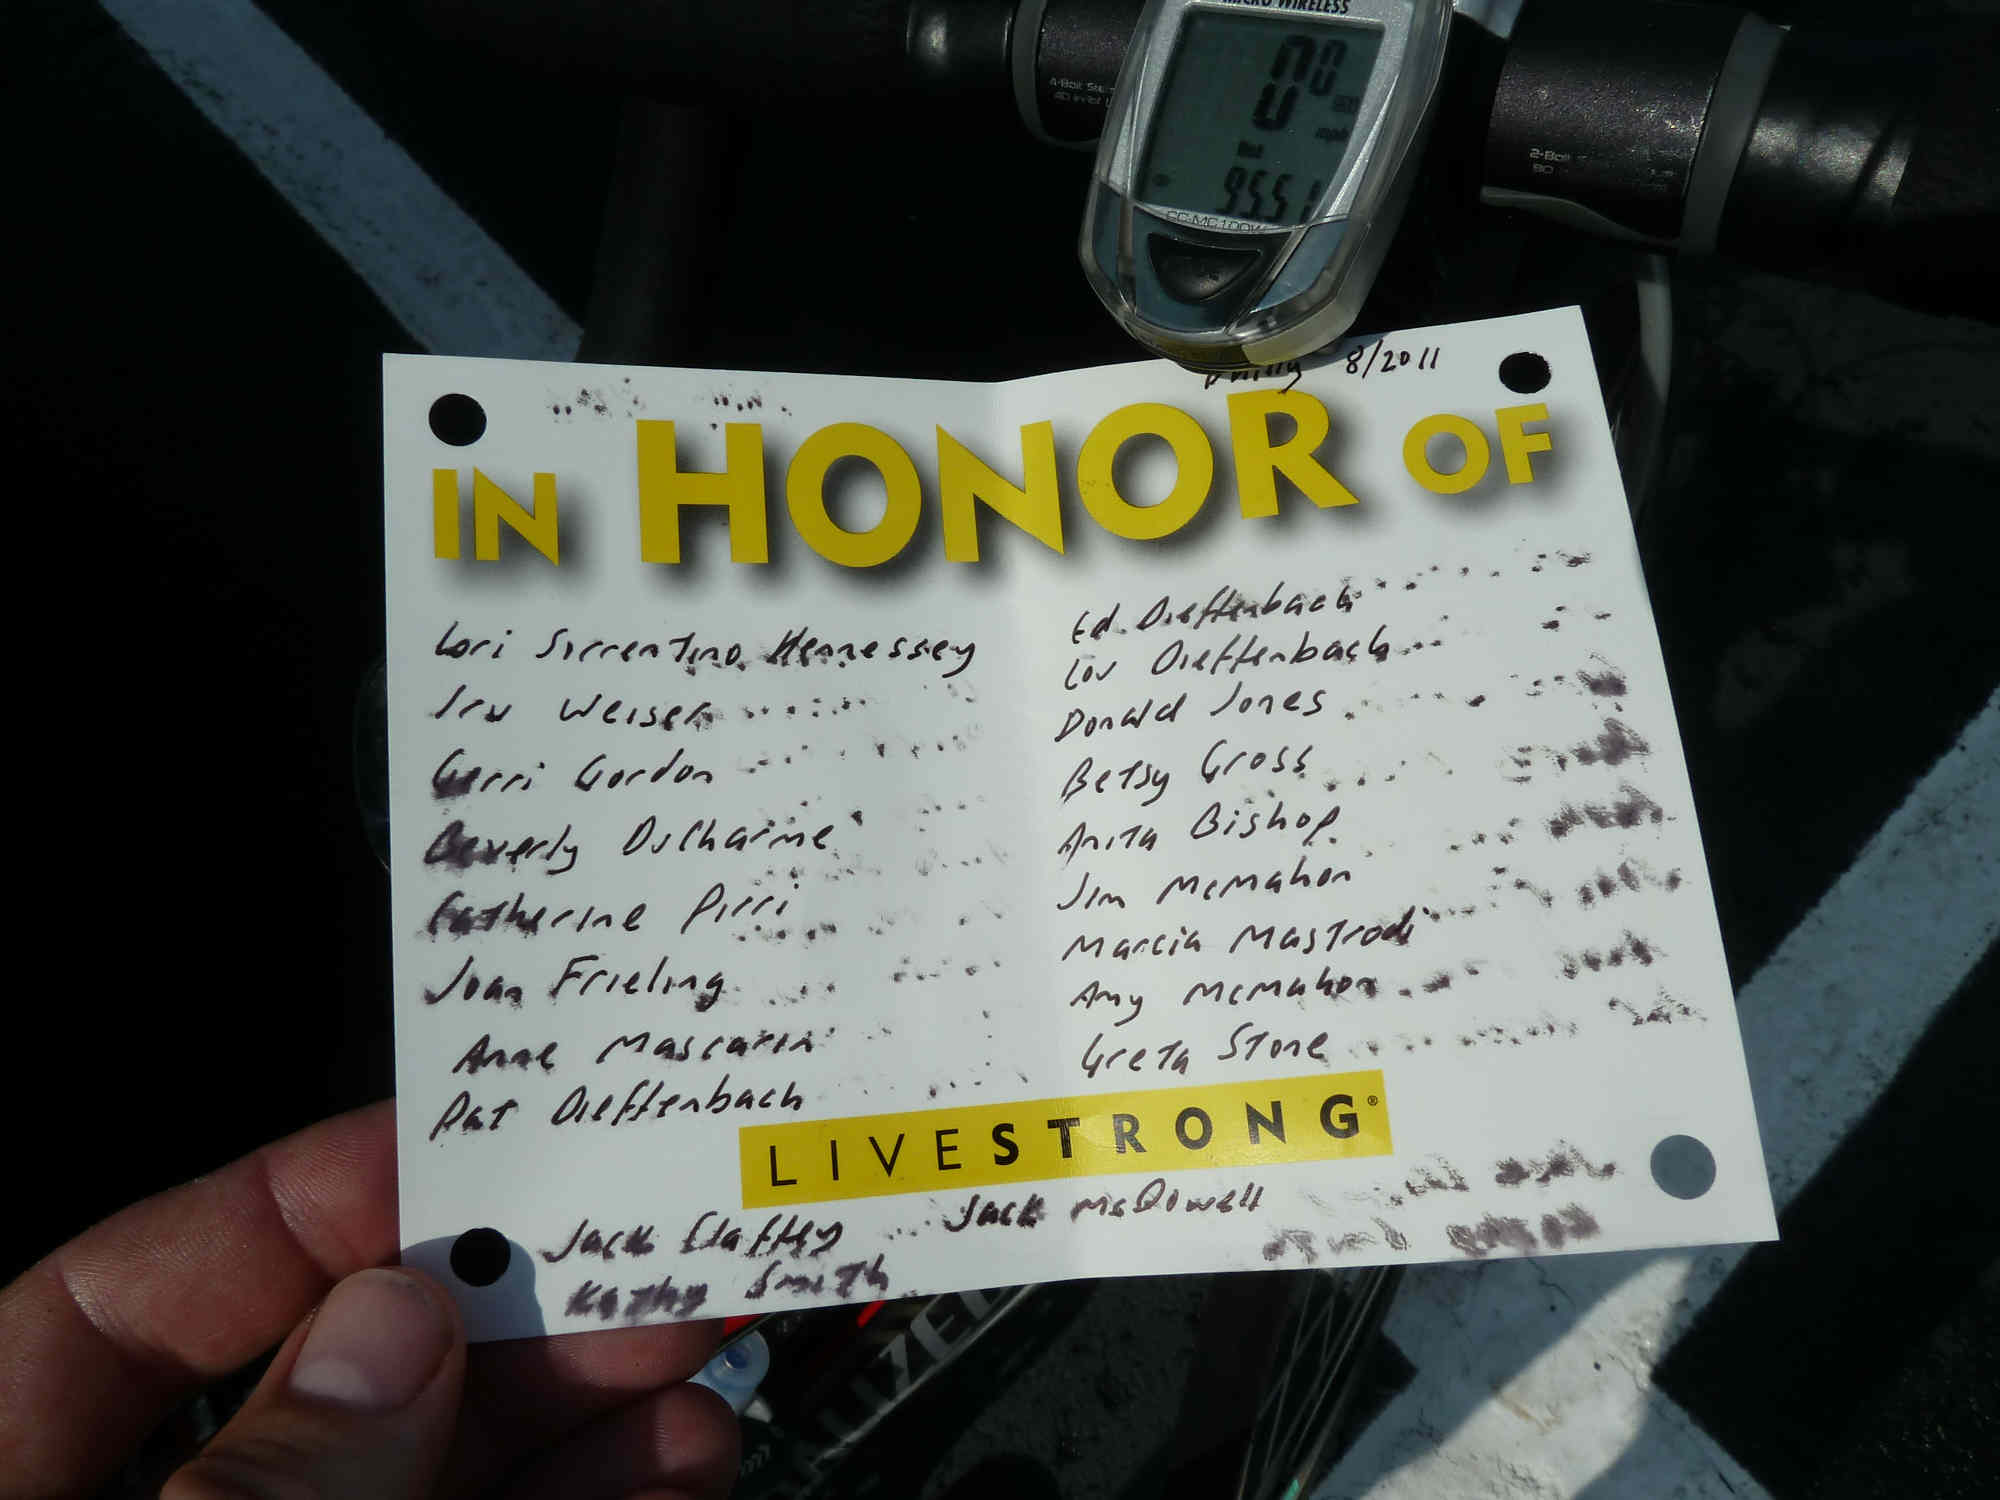 MICRO WIRELESS
4-Bolt
2-Bolt
80
95.51
CC-MC100W
Philly 8/2011
IN HONOR OF
Lori Sorrentino Hennessey
Irv Weiser
Gerri Gordon
Beverly DuCharme
Catherine Pirri
Joan Frieling
Anne Mascarin
Pat Dieffenbach
Ed Dieffenbach
Lou Dieffenbach
Donald Jones
Betsy Gross
Anita Bishop
Jim McMahon
Marcia Mastrodi
Amy McMahon
Greta Stone
LIVESTRONG®
Jack Claffey
Jack McDowell
Kathy Smith